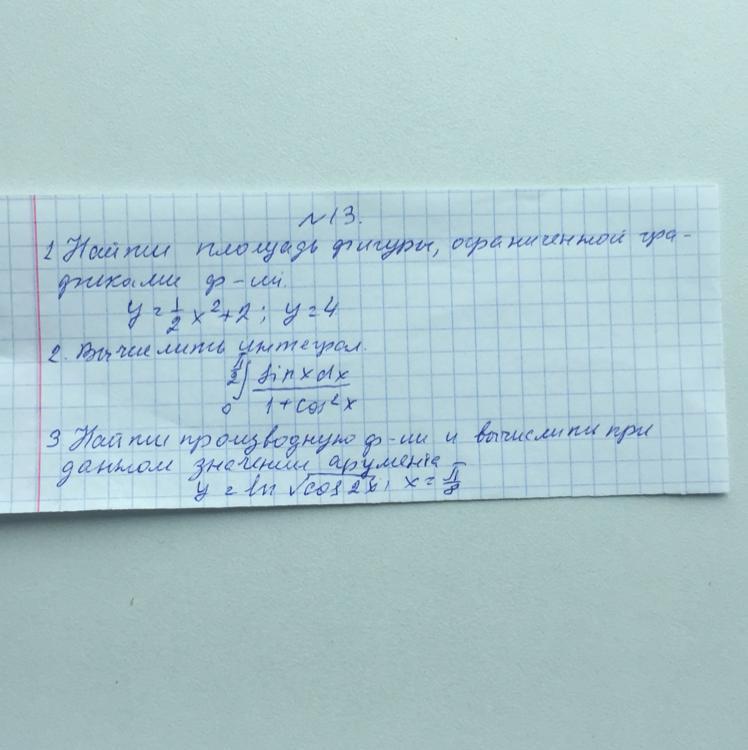 №13.
1 Найти площадь фигуры, ограниченной гра-
фиками ф-ий.
y = 1/2 x² + 2; y = 4
2. Вычислить интеграл.
∫₀^(π/2) sin x dx / (1 + cos² x)
3 Найти производную ф-ии и вычислить при
данном значении арумента
y = ln √cos 2x; x = π/8